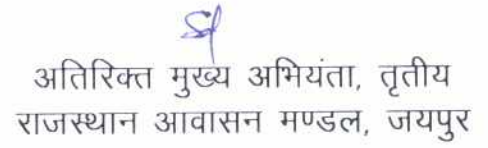 अतिरिक्त मुख्य अभियंता, तृतीय
राजस्थान आवासन मण्डल, जयपुर